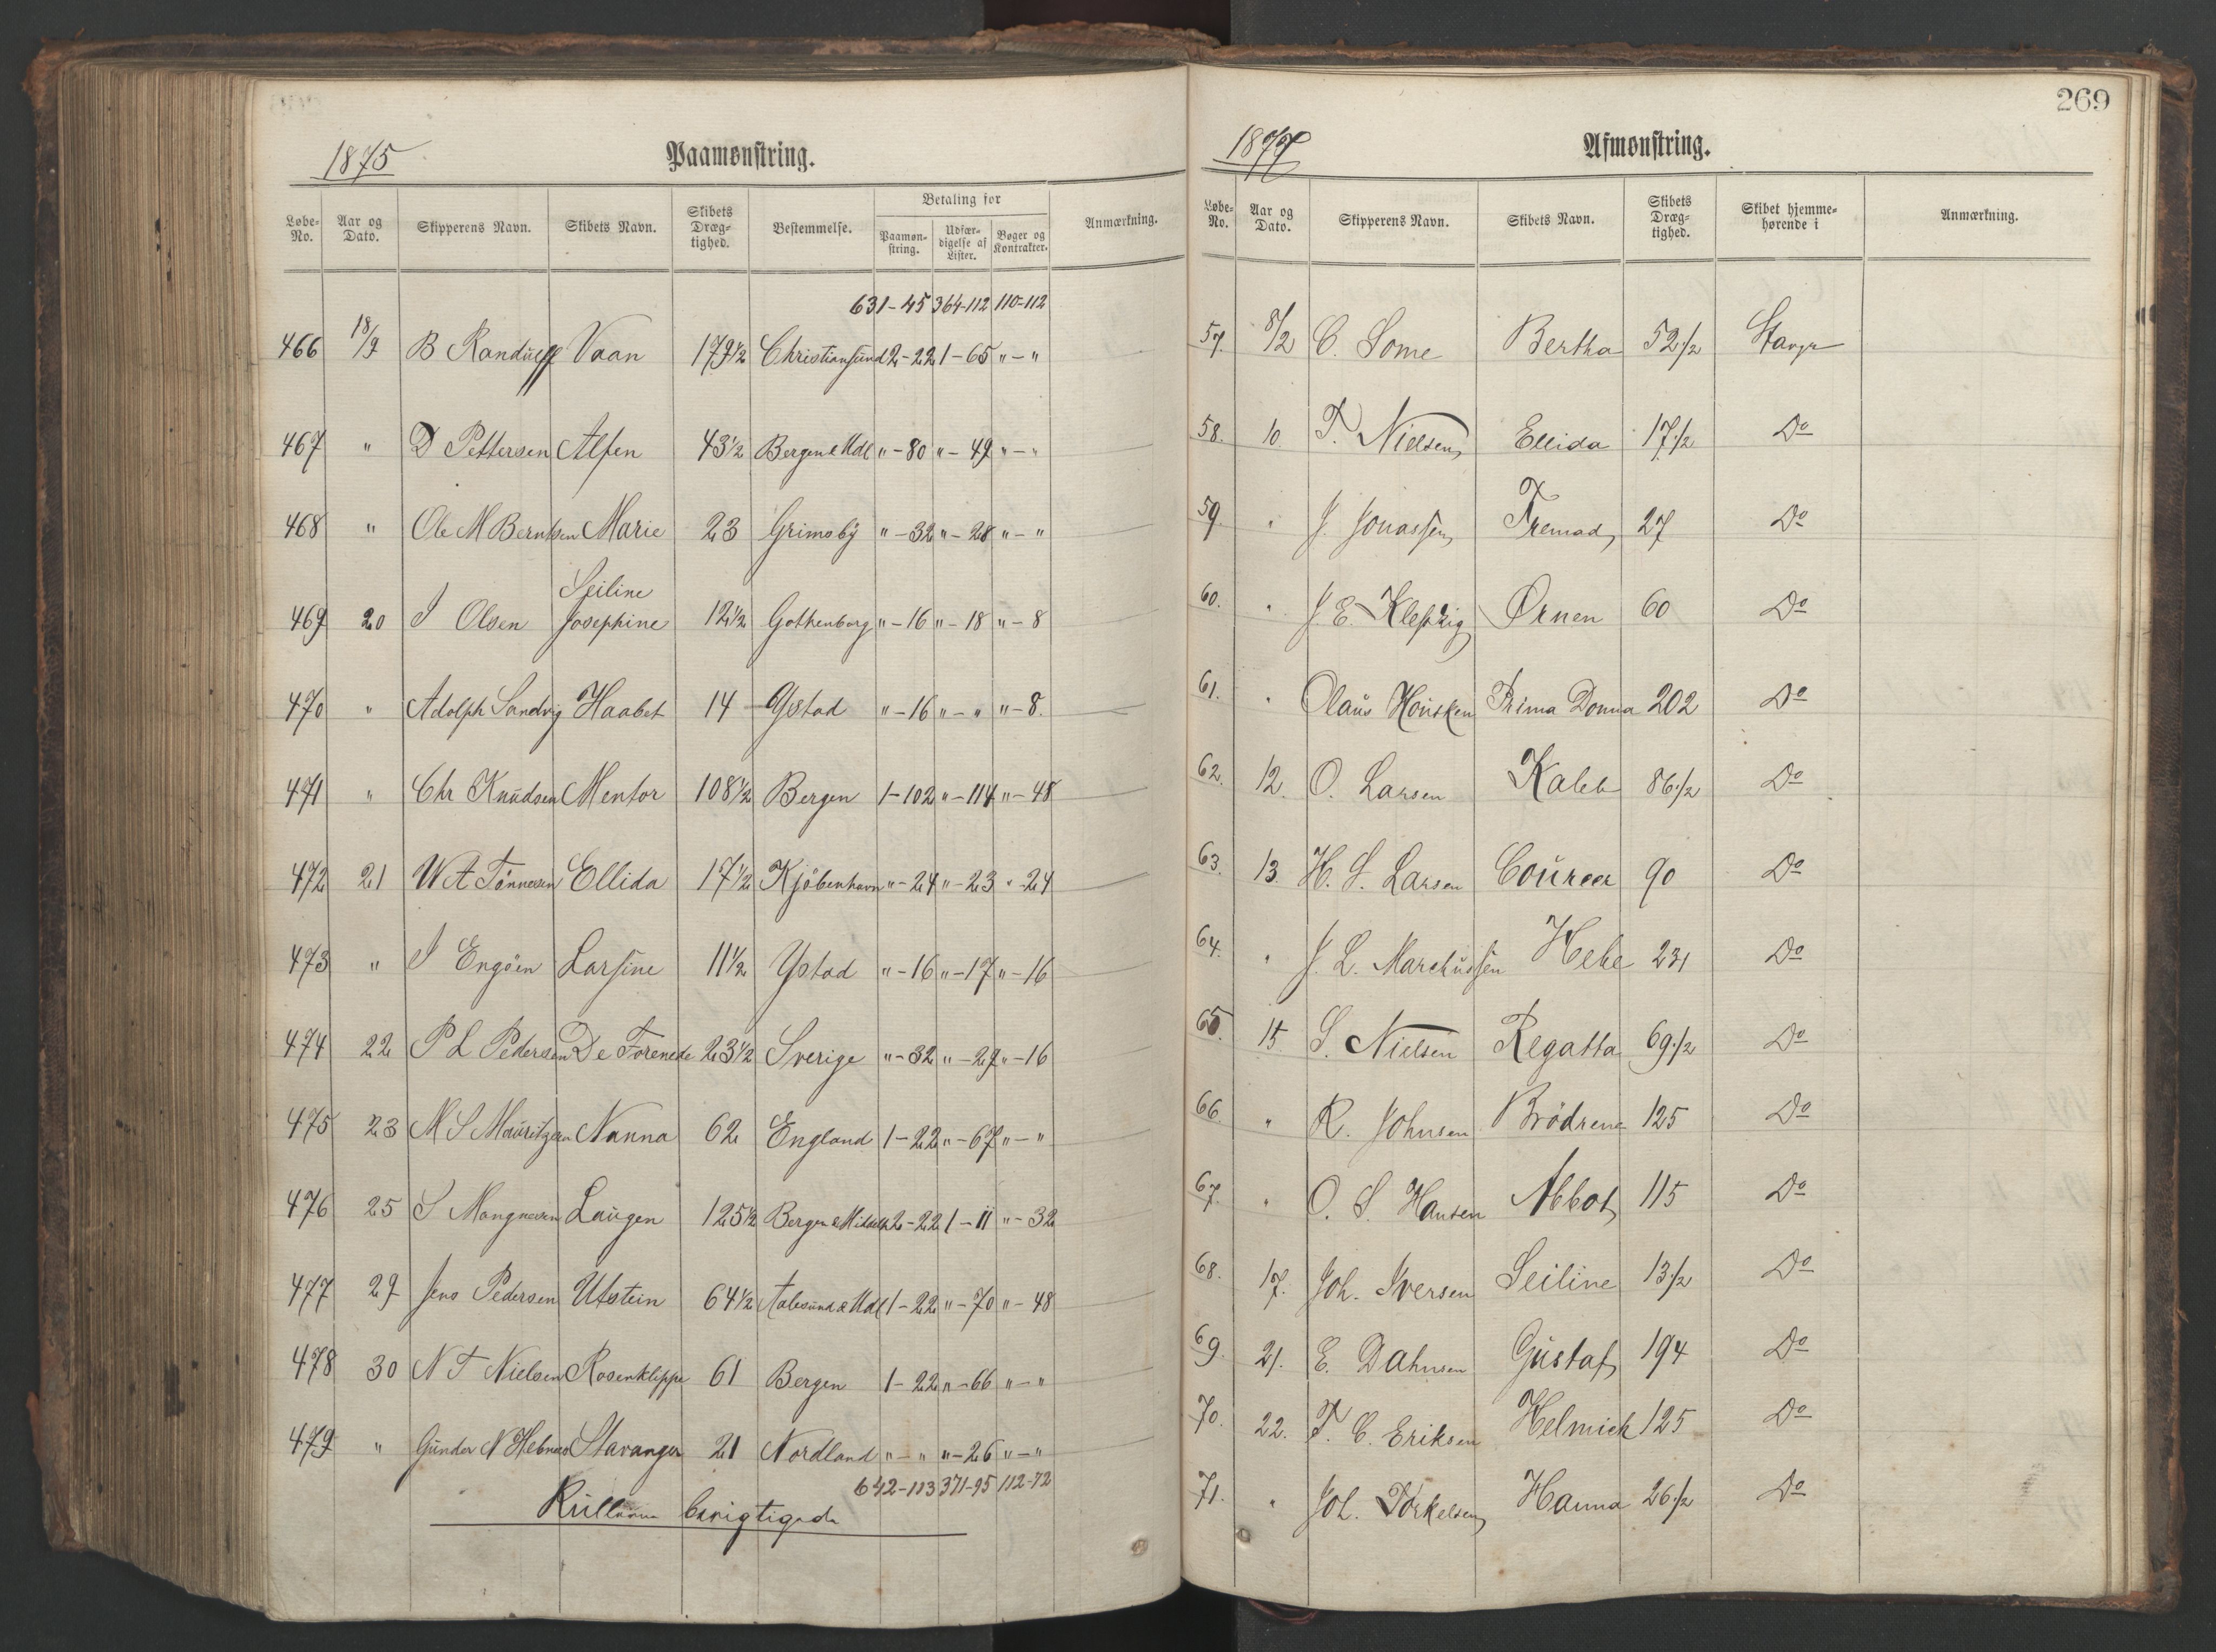 1875 Paamønstring.
Løbe-No. Aar og Dato. Skipperens Navn. Skibets Navn. Skibets Dræg-tighed. Bestemmelse. Betaling for Paamøn-string. Udfær-digelse af Lister. Bøger og Kontrakter. Anmærkning.
631-45 364-112 110-112
466 18/9 B Randulff Vaan 179 1/2 Christiansund 2-22 1-65 "-"
467 " D Pettersen Alfen 43 1/2 Bergen & Mdl "-80 "-49 "-"
468 " Ole M Berntsen Marie 23 Grimsby "-32 "-28 "-"
469 20 I Olsen Seiline Josephine 12 1/2 Gothenborg "-16 "-18 "-8
470 " Adolph Sandvig Haabet 14 Ystad "-16 "-" "-8.
471 " Chr Knudsen Mentor 108 1/2 Bergen 1-102 "-114 "-48
472 21 W A Tönnesen Ellida 17 1/2 Kjöbenhavn "-24 "-23 "-24
473 " I Engöen Larsine 11 1/2 Ystad "-16 "-17 "-16
474 22 P L Pedersen De Forenede 23 1/2 Sverige "-32 "-29 "-16
475 23 M S Mauritzen Nanna 62 England 1-22 "-67 "-"
476 25 S Mangnesen Laugen 125 1/2 Bergen & Middelh 2-22 1-11 "-32
477 29 Jens Pedersen Utstein 64 1/2 Aalesund & Mdl 1-22 "-70 "-48
478 30 N T Nielsen Rosenklippe 61 Bergen 1-22 "-66 "-"
479 " Gunder N Hebnes Stavanger 21 Nordland "-" "-26 "-"
642-113 371-95 112-72
Rullerne berigtigede
269
1877 Afmønstring.
Løbe-No. Aar og Dato. Skipperens Navn. Skibets Navn. Skibets Dræg-tighed. Skibet hjemme-hørende i Anmærkning.
57. 8/2 C. Some Bertha 52 1/2 Stavgr
58. 10. T. Nielsen Ellida 17 1/2 Do
59. " J. Jonassen Fremad 27 Do
60. " J. E. Klepzig Ørnen 60 Do
61. " Olaus Housken Prima Donna 202 Do
62. 12. O. Larsen Kaleb 86 1/2 Do
63. 13. H. S. Larsen Coureer 90 Do
64. " J. L. Marchussen Hebe 231 Do
65. 15. S. Nielsen Regatta 69 1/2 Do
66. " R. Johnsen Brödrene 125 Do
67. " O. S. Hansen Abbot 115 Do
68. 17. Joh. Iversen Seiline 13 1/2 Do
69. 21. E. Dahnsen Gustaf 194 Do
70. 22. T. C. Eriksen Helmich 125 Do
71. " Joh. Torkelsen Hanna 26 1/2 Do